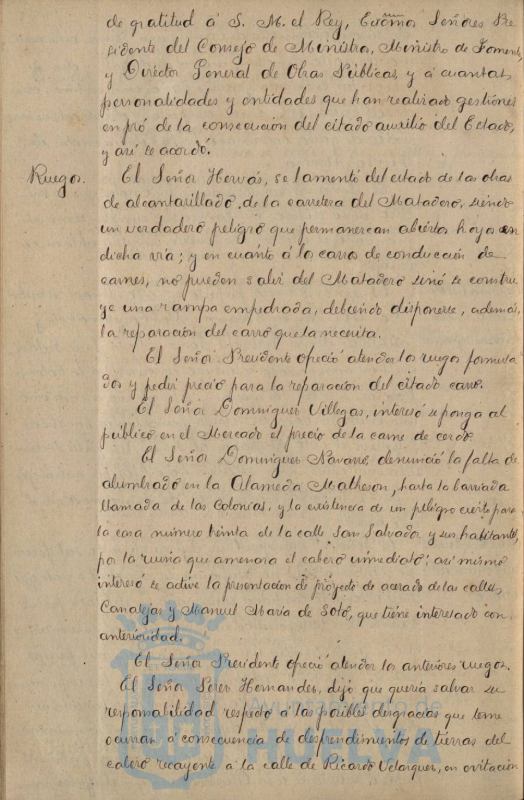 de gratitud á S. M. el Rey, Excmos Señores Pre
sidente del Consejo de Ministros, Ministro de Fomento,
y Director General de Obras Públicas, y á cuantas
personalidades y entidades que han realizado gestiones
en pró de la consecución del citado auxilio del Estado,
y así se acordó.
Ruegos.
El Señor Hervás, se lamentó del estado de las obras
de alcantarillado de la carretera del Matadero, siendo
un verdadero peligro que permanezcan abiertos hoyos en
dicha vía; y en cuanto á los carros de conducción de
carnes, no pueden salir del Matadero sinó se constru
ye una rampa empedrada, debiendo disponerse, además,
la reparación del carro que la necesita.
El Señor Presidente ofreció atender los ruegos formula
dos y pedir precio para la reparación del citado carro.
El Señor Dominguez Villegas, interesó se ponga al
público en el Mercado el precio de la carne de cerdo.
El Señor Dominguez Navarro, denunció la falta de
alumbrado en la Alameda Matheson, hasta la barriada
llamada de las Colonias, y la existencia de un peligro cierto para
la casa número treinta de la calle San Salvador y sus habitantes,
por la ruina que amenaza el cabezo inmediato; así mismo
interesó se active la presentación de proyecto de acerado de las calles,
Canalejas y Manuel María de Soto, que tiene interesado con
anterioridad.
El Señor Presidente ofreció atender los anteriores ruegos.
El Señor Perez Hernandez, dijo que quería salvar su
responsabilidad respecto á las posibles desgracias que teme
ocurran á consecuencia de desprendimientos de tierras del
cabezo recayente á la calle de Ricardo Velazquez, en evitación
Ayuntamiento de
HUELVA